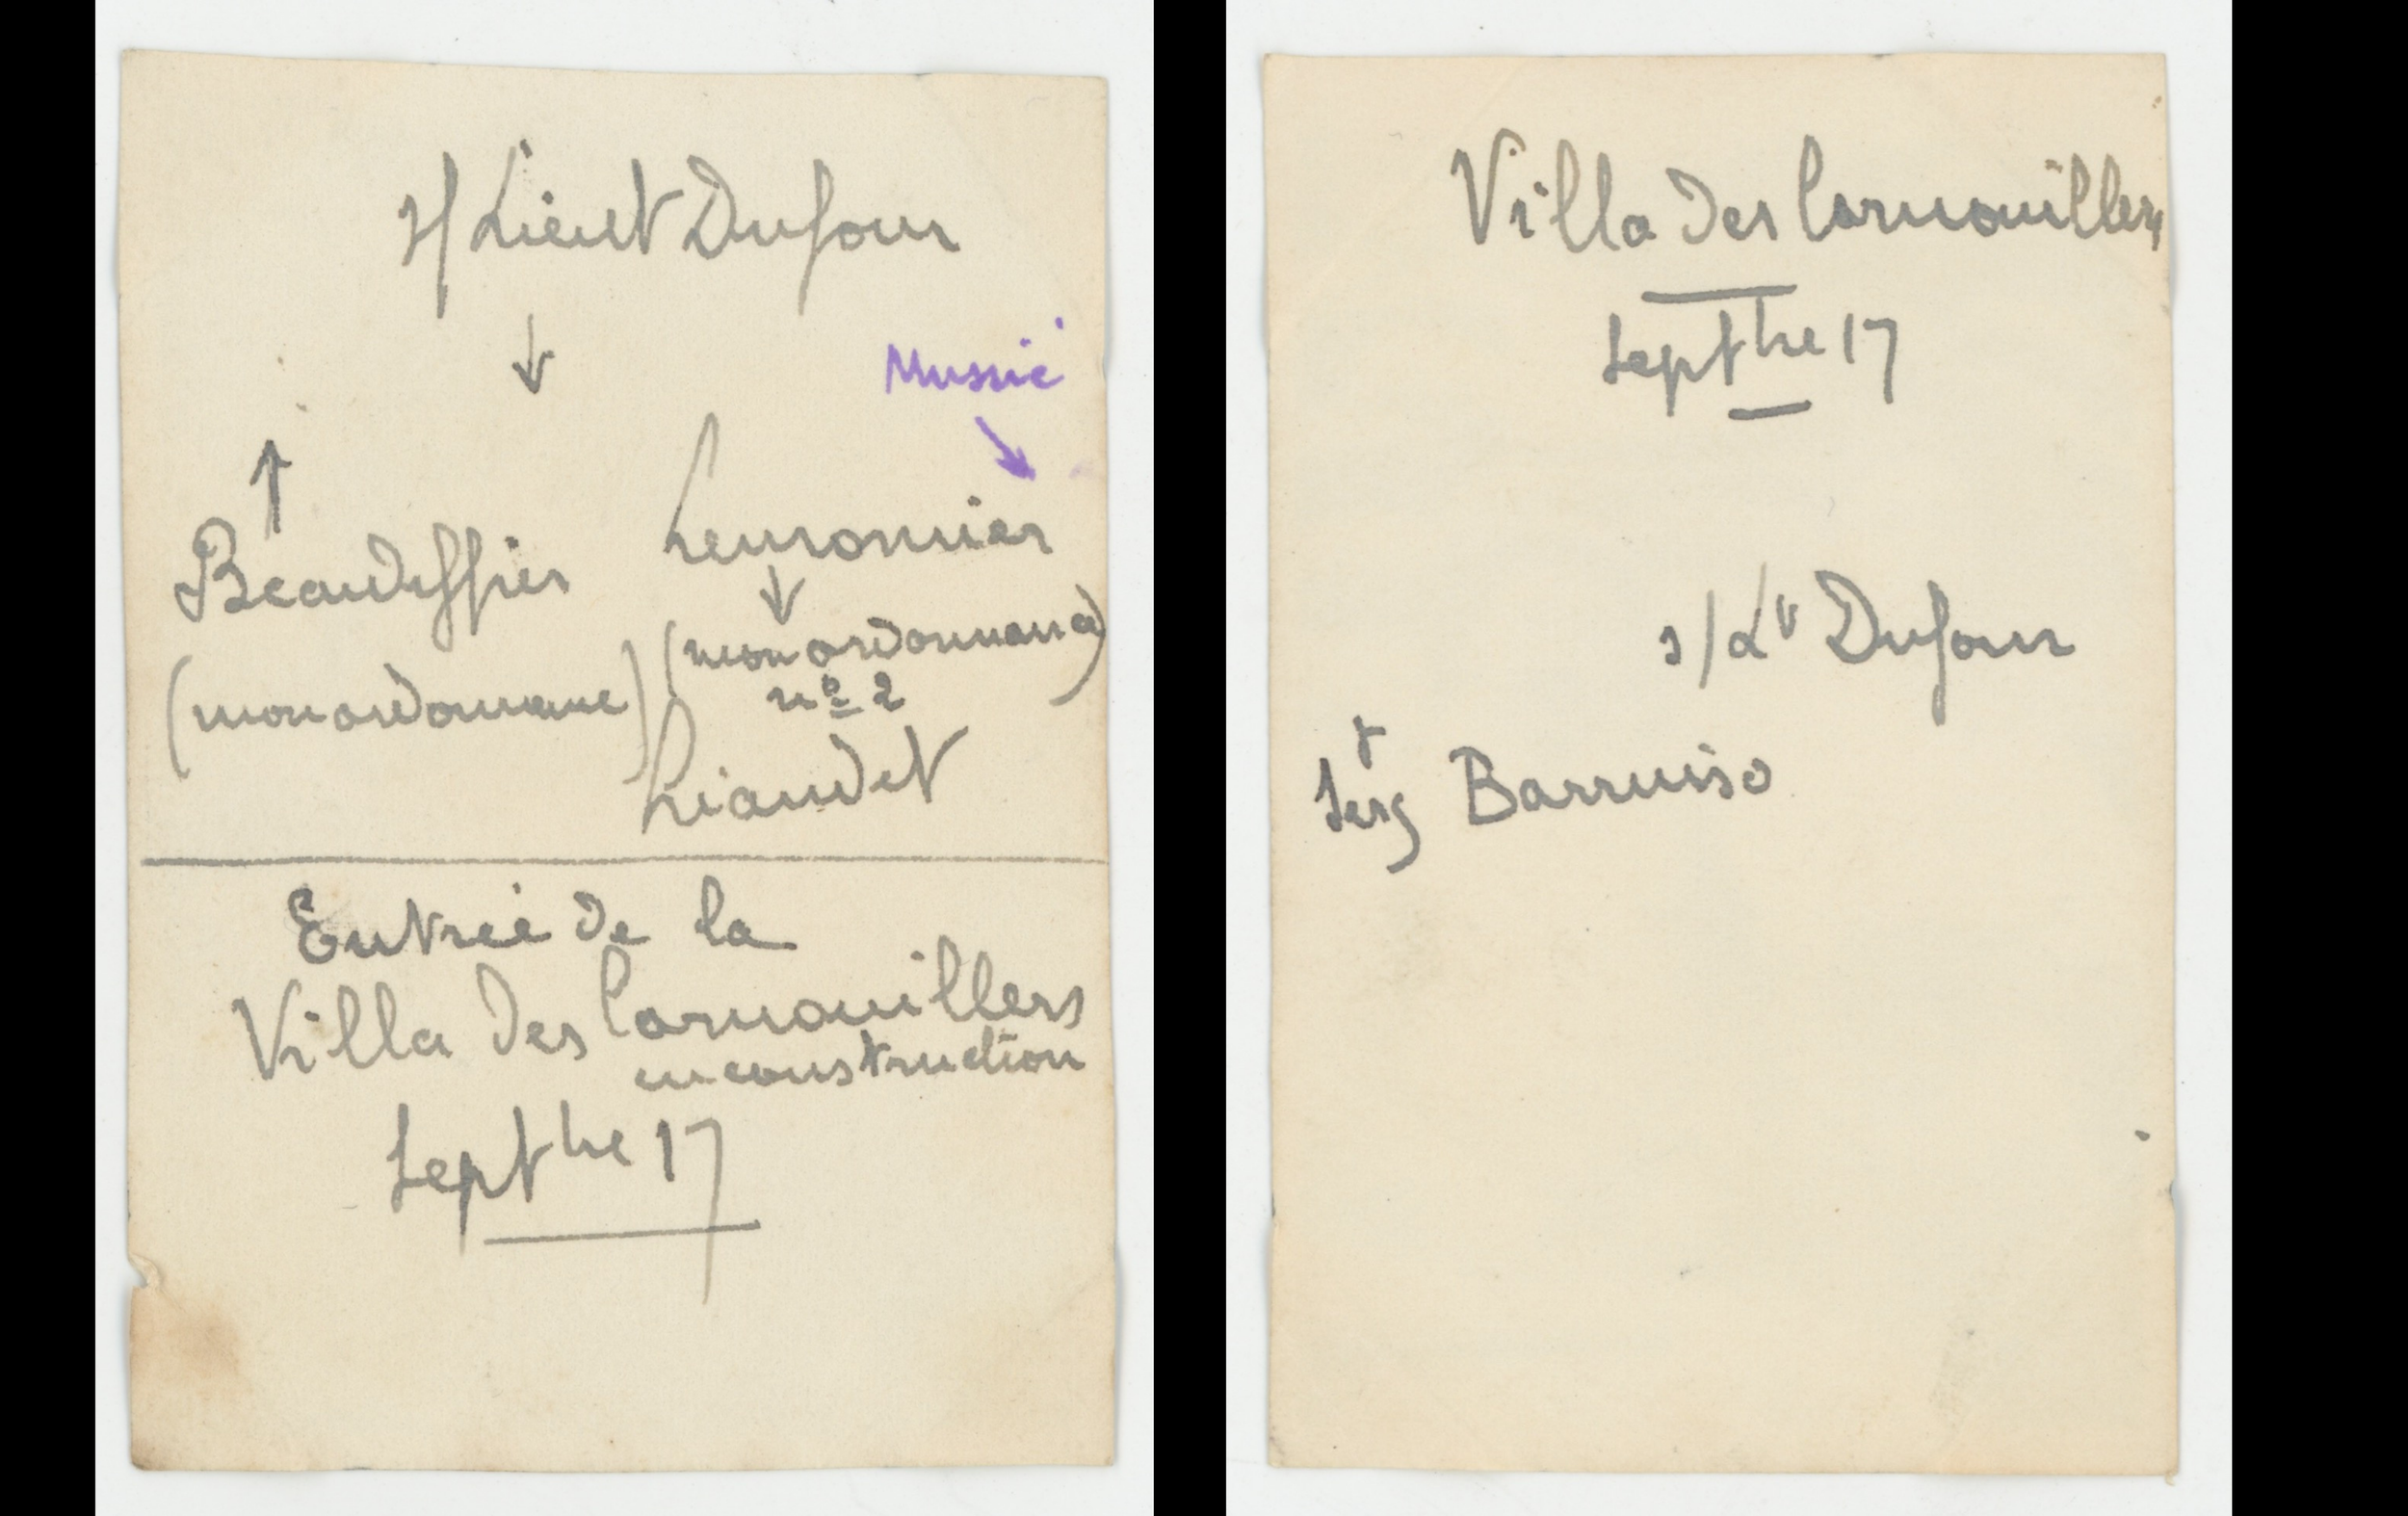 s/Lieut Dufour
↓
Mussié
↘
↑
Lemonnier
Beaudeffier
↓
(mon ordonnance)
n° 2
(mon ordonnance)
Liaudet
Entrée de la
Villa des Cornouillers
en construction
Septbre 17
Villa des Cornouillers
Septbre 17
s/Lt Dufour
Sergt Barruiso